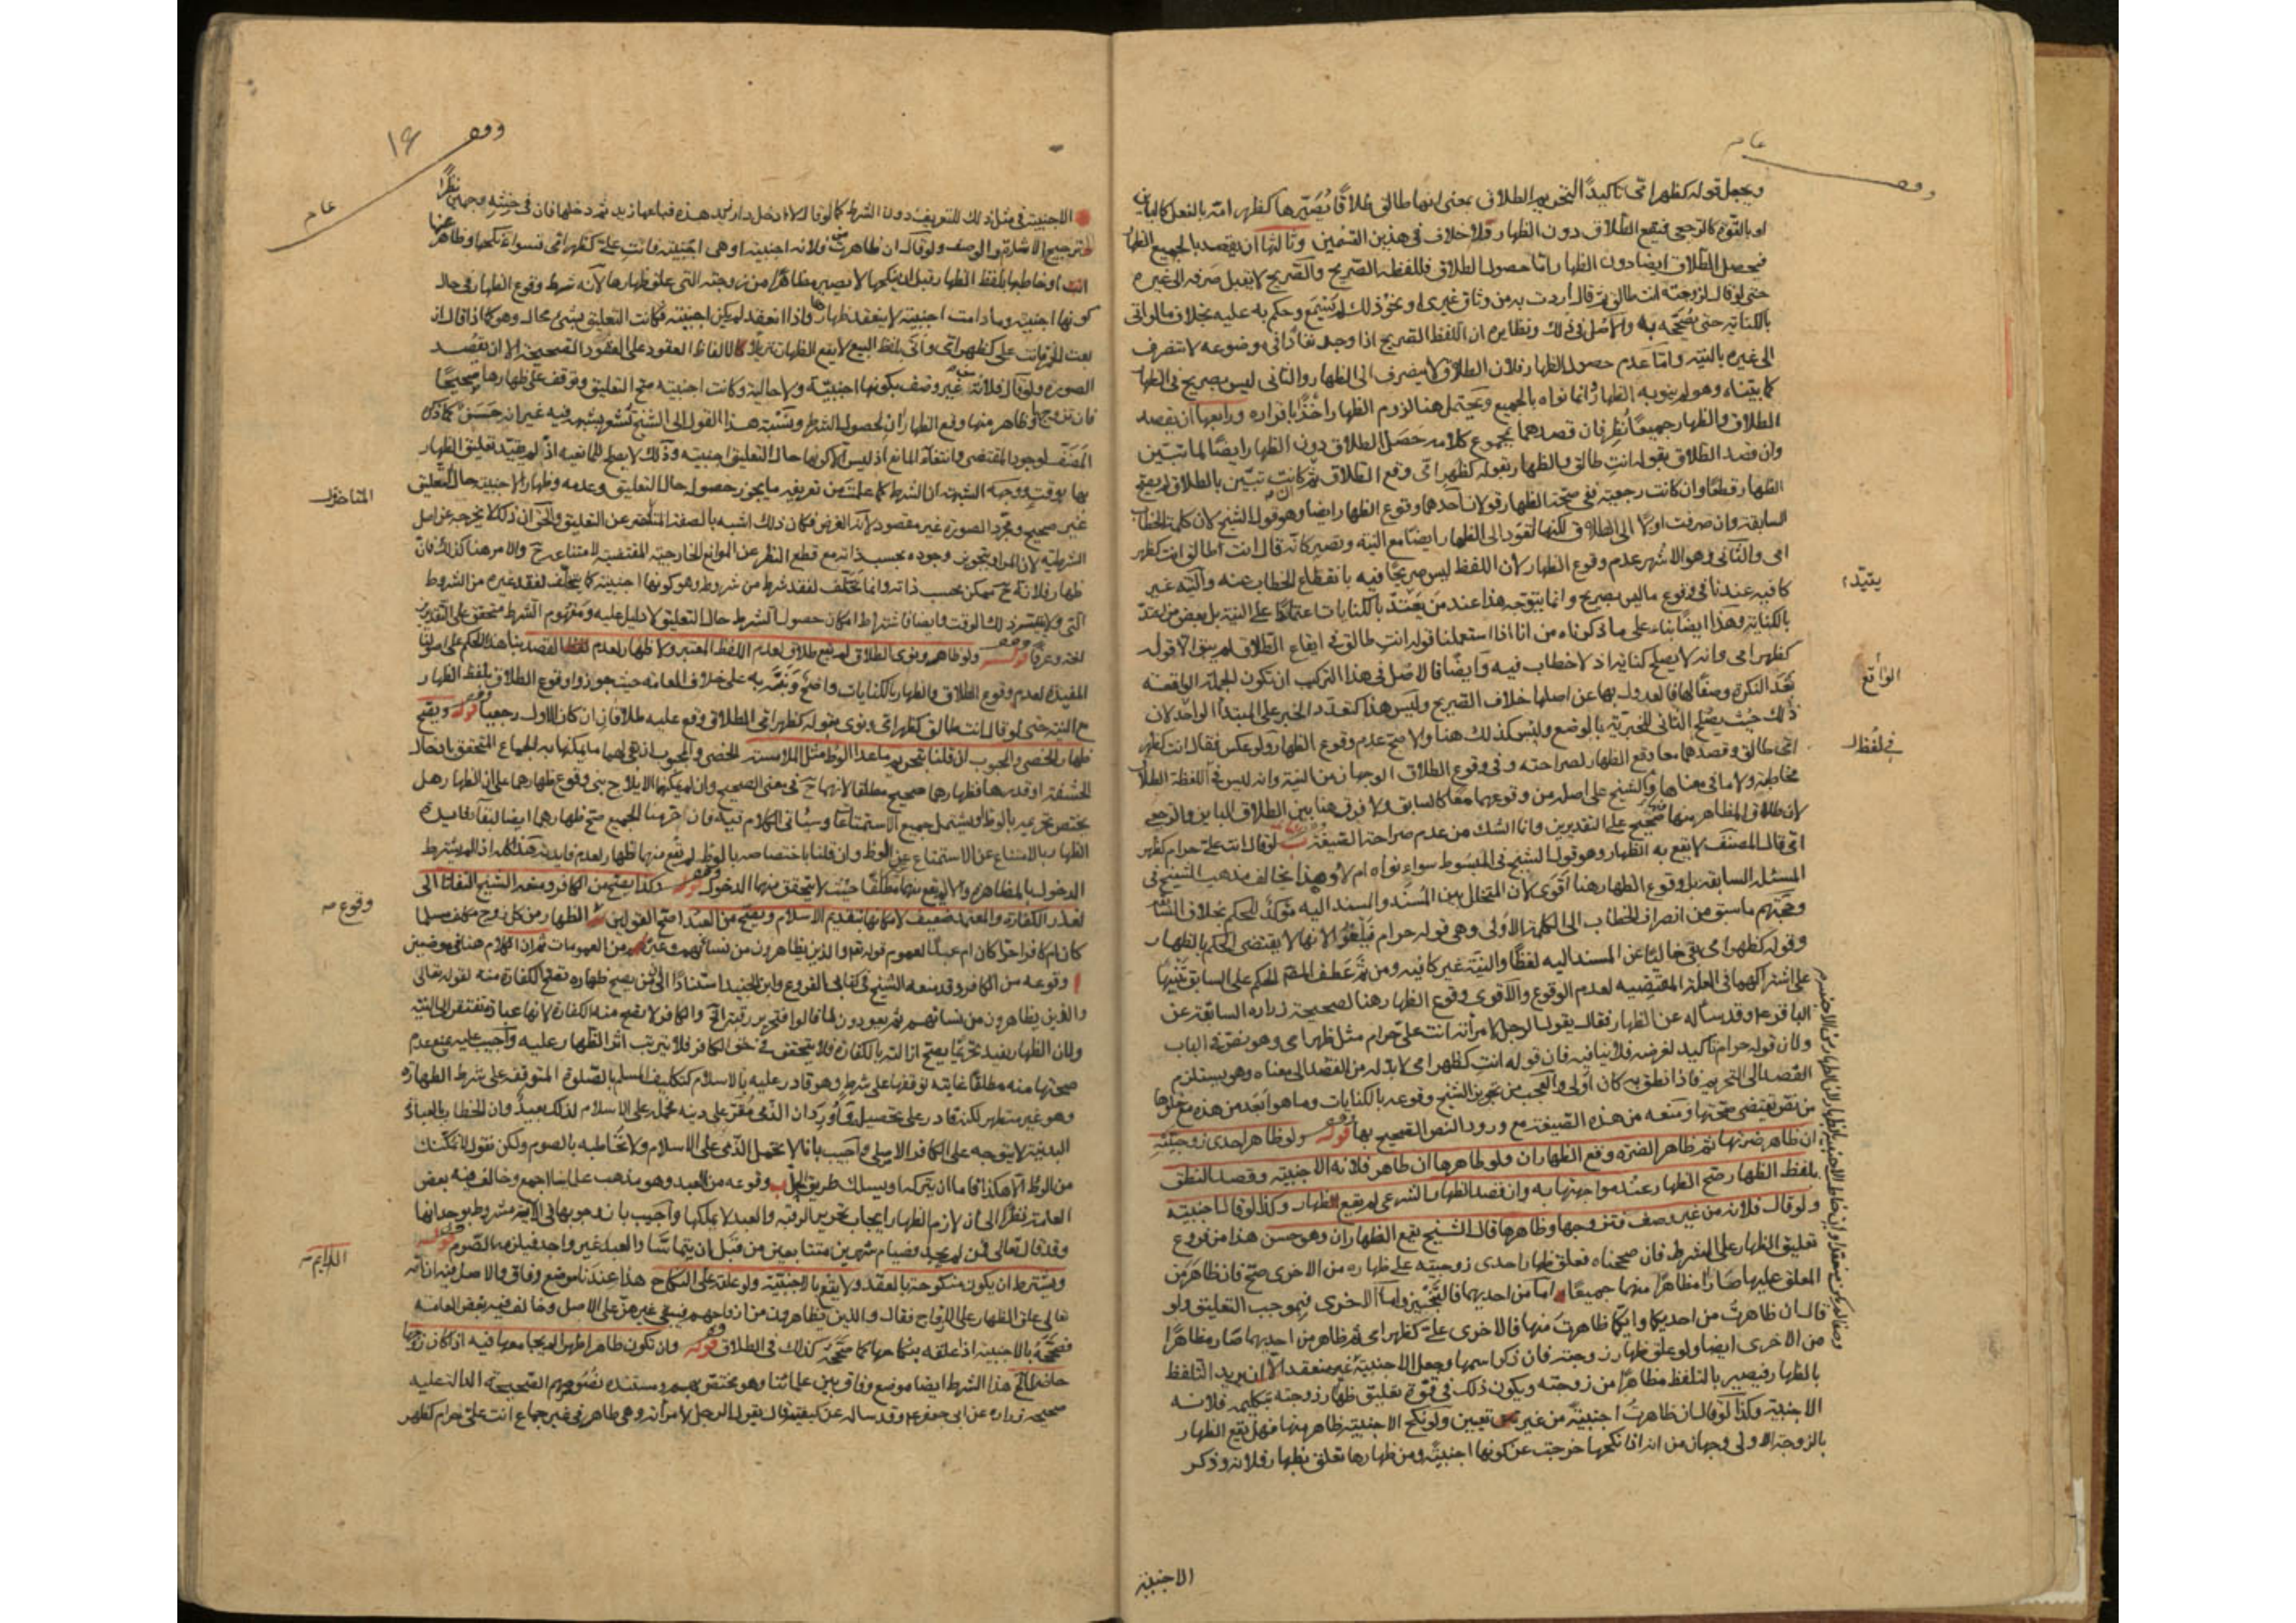 وقف عام
ويجعل قوله كظهر امي تاكيدًا لتحريم الطلاق بمعنى انها طالق طلاقًا يُصَيّرها كظهر امه بالفعل كالباين
او بالقوة كالرجعي فيقع الطلاق دون الظهار ولا خلاف في هذين القسمين وثالثها ان يقصد بالجميع الظهار
فيحصل الطلاق ايضا دون الظهار اما حصول الطلاق فللفظه الصريح والصريح لا يقبل صرفه الى غيره
حتى لو قال لزوجته انت طالق ثم قال اردت به من وثاق غيري او نحو ذلك لم يسمع وحكم به عليه بخلاف ما لو اتى
بالكناية حتى يصحّ به والاصل في ذلك ونظايره ان اللفظ الصريح اذا وجد نفاذًا في موضوعه لا تنصرف
الى غيره بالنية واما عدم حصول الظهار فلان الطلاق لا ينصرف الى الظهار والثاني ليس بصريح في الظهار
كما بيناه وهو لم ينو به الظهار وانما نواه بالجميع ويحتمل هنا لزوم الظهار اخذًا باقراره ورابعها ان يقصد
الطلاق والظهار جميعًا نُظِر فان قصدهما بمجموع كلامه حَصَل الطلاق دون الظهار ايضًا لما تبين
وان قصد الطلاق بقوله انت طالق والظهار بقوله كظهر امي وقع الطلاق ثم ان كانت تبيّن بالطلاق لم يقع
الظهار قطعًا وان كانت رجعية ففي صحة الظهار قولان احدهما وقوع الظهار ايضا وهو قول الشيخ لان كلمة الخطاب
السابقة وان صرفت اولًا الى الطلاق لكنها تعود الى الظهار ايضًا مع النية ويصير كانه قال انت طالق انت كظهر
امي والثاني وهو الاشهر عدم وقوع الظهار لان اللفظ ليس صريحًا فيه بانقطاع الخطاب عنه والنية غير
كافية عندنا في وقوع ما ليس بصريح وانما يتوجه هذا عند من يَعتدّ بالكنايات اعتمادًا على النية بل بعض من اعتدّ
بالكناية وهذا ايضًا بناء على ما ذكرناه من انا اذا استعملنا قوله انت طالق في ايقاع الطلاق لم يبق الا قوله
كظهر امي وانه لا يصلح كناية اذ لا خطاب فيه وايضًا فالاصل في هذا التركيب ان تكون الجملة الواقعة
بَعْدَ النكرة وصفًا لها فالعدول بها عن اصلها خلاف الصريح وليس هذا كتعدد الخبر على المبتدأ الواحد لان
ذلك حيث يصلح الثاني للخبرية بالوضع وليس كذلك هنا والاصح عدم وقوع الظهار ولو عكس فقال انت كظهر
امي طالق وقصدهما معا وقع الظهار لصراحته وفي وقوع الطلاق الوجهان من النية وانه ليس في لفظة الطلاق
مخاطبة ولا ما في معناها والشيخ على اصله من وقوعهما معًا كالسابق ولا فرق هنا بين الطلاق الباين والرجعي
لان طلاق المظاهر منها صحيح على التقديرين وانما الشك من عدم صراحة الصيغة قوله لو قال انت علي حرام كظهر
امي قال المصنف لا يقع به الظهار وهو قول الشيخ في المبسوط سواء نواه ام لا وهذا يخالف مذهب الشيخ في
المسئلة السابقة بل وقوع الظهار هنا اقوى لان المتخلل بين المُسند والمسند اليه مؤكد للحكم بخلاف السّابق
وحجّتهم ما سبق من انصراف الخطاب الى الكلمة الاولى وهي قوله حرام فيَلْغُوا لانها لا يقتضي الحكم بالظهار
وقوله كظهر امي بقي خاليًا عن المسند اليه لفظًا والنية غير كافية ومن ثَمّ عَطف المصنف الحكم على السابق تنبيهًا
على اشتراكهما في العلة المقتضية لعدم الوقوع والاقوى وقوع الظهار هنا لصحيحة زرارة السابقة عن
الباقر ع وقد سأله عن الظهار فقال يقول الرجل لامرأته انت علي حرام مثل ظهر امي وهو نص في الباب
ولان قوله حرام تاكيد لغرضه فلا ينافيه فان قوله انت كظهر امي لا بد له من القصد الى معناه وهو يستلزم
القصد الى التحريم فاذا نطق به كان اولى والعجب من تجويز الشيخ وقوعه بالكنايات وما هو ابعد من هذه مع خلوها
من نص يقتضي صحتها ومَنعه من هذه الصيغة مع ورود النص الصحيح بها قوله ولو ظاهر احدى زوجتيه
ان ظاهر ضرتها ثم ظاهر الضرة وقع الظهاران ولو ظاهرها ان ظاهر فلانة الاجنبية وقصد النطق
بلفظ الظهار صح الظهار عند مواجهتها به وان قصد الظهار الشرعي لم يقع الظهار وكذا لو قال اجنبية
ولو قال فلانة من غير وصف فتزوجها وظاهرها قال الشيخ يقع الظهاران وهو حسن هذا من فروع
تعليق الظهار على الشرط فان صححناه فعلق ظهار احدى زوجتيه على ظهاره من الاخرى صح فان ظاهر من
المعلق عليها صار مظاهرًا منهما جميعًا اما من احديهما فالتنجيز واما الاخرى فبموجب التعليق ولو
قال ان ظاهرتُ من احديكما وايكما ظاهرت منها فالاخرى علي كظهر امي ثم ظاهر من احديهما صار مظاهرًا
من الاخرى ايضا ولو علق ظهار زوجته فان ذكر اسمها وجعل الاجنبية غير منعقد الا ان يريد التلفظ
بالظهار فيصير بالتلفظ مظاهرًا من زوجته ويكون ذلك في قوة تعليق ظهار زوجته بتكليمه فلانة
الاجنبية وكذا لو قال ان ظاهرتُ اجنبيةً من غير تعيين ولو نكح الاجنبية ظاهر منها فهل يقع الظهار
بالزوجة الاولى وجهان من انه اذا نكحها خرجت عن كونها اجنبيةً ومن ظهارها تعلق بظهار فلانة وذكر
يعتدّ
الواقع
في لفظ
الاجنبية
وقف عام
١٤
الاجنبية في مثل ذلك للتعريف دون الشرط كما لو قال لا ادخل دار زيد هذه فباعها زيد ثم دخلها فان في حنثه وجهين نظرًا
لترجيح الاشارة والوصف ولو قال ان ظاهرت من فلانة اجنبية او هي اجنبية فانت علي كظهر امي فسواء نكحها وظاهر عنها
ام خاطبها بلفظ الظهار قبل ان ينكحها لا يصير مظاهرًا من زوجته التي علق ظهارها لانه شرط وقوع الظهار في حال
كونها اجنبية وما دامت اجنبية لا ينعقد ظهارها واذا انعقد لم يكن اجنبية فكانت التعليق بشيء محال وهو كما اذا قال ان
بعت الخمر فانت علي كظهر امي واتى بلفظ البيع لا يقع الظهار تنزيلًا للالفاظ العقود على العقود الصحيحة الا ان يقصد
الصورة ولو قال فلانة من غير وصف بكونها اجنبيّة ولا حالية وكانت اجنبية صح التعليق وتوقف على ظهارها صحيحًا
فان تزوجها وظاهر منها وقع الظهاران لحصول الشرط ونسبة هذا القول الى الشيخ تُشعر بشبهة فيه غير انه حَسَن كما ذكره
المصنّف لوجود المقتضي وانتفاء المانع اذ ليس الا كونها حال التعليق اجنبية وذلك لا يصلح للمانعية اذ لم يقيد تعليق الظهار
بها بوقت ووجه الشبهة ان الشرط كما علمت من تعريفه ما يجوز حصوله حال التعليق وعدمه وظهار الاجنبية حال التعليق
غير صحيح ومجرّد الصورة غير مقصود لانه الفرض فكان ذلك اشبه بالصفة المتأخر عن التعليق والحق ان ذلك لا يخرجه عن اصل
الشرطية لان المراد بتجويز وجوده بحسب ذاته مع قطع النظر عن الموانع الخارجية المقتضية لامتناعه ح والامر هنا كذلك فان
ظهار فلانة ح ممكن بحسب ذاته وانما تخلّف لفقد شرط من شروطه وهو كونها اجنبية كما يتخلّف لفقد غيره من الشروط
التي لا تتيسر ذلك الوقت وايضا فاشتراط امكان حصول الشرط حال التعليق لا دليل عليه ومفهوم الشرط متحقق على التقديرين
لغة وعرفًا قوله ولو ظاهر ونوى الطلاق لم يقع طلاق لعدم اللفظ المعتبر ولا ظهار لعدم القصد بناء هذا الحكم على اصولنا
المفيدة لعدم وقوع الطلاق والظهار بالكنايات واضح ونبّه به على خلاف العامة حيث جوزوا وقوع الطلاق بلفظ الظهار
مع النية حتى لو قال انت طالق كظهر امي ونوى بقوله كظهر امي الطلاق وقع عليه طلاقان ان كان الاول رجعيا قوله ويقع
ظهار الخصي والمجبوب ان قلنا بتحريم ما عدا الوطء مثل الملامسة الخصي والمجبوب ان بقي لهما ما يمكنهما به الجماع المتحقق بادخال
الحشفة او قدرها فظهارهما صحيح مطلقا لانهما ح في معنى الصحيح وان لم يمكنهما الايلاج بني وقوع ظهارهما على ان الظهار هل
يختص تحريمه بالوطء او يشمل جميع الاستمتاعات وسياتي الكلام فيه فان حرمنا الجميع صح ظهارهما ايضا لبقاء فايدة
الظهار بالامتناع عن الاستمتاع غير الوطء وان قلنا باختصاصه بالوطء لم يقع منهما ظهار لعدم فايدته هذا كله اذا لم يشترط
الدخول بالمظاهرة والا لم يقع منهما مطلقًا حيث لا يتحقق منهما الدخول قوله وكذا يصح من الكافر ومنعه الشيخ التفاتا الى
تعذر الكفارة والمعتمد ضعيف لامكانها بتقديم الاسلام ويصح من العبد اصح القولين الظهار من كل زوج مكلف مسلما
كان ام كافرا حرا كان ام عبدًا لعموم قوله تع والذين يظاهرون من نسائهم وغيره من العمومات ثم ان الكلام هنا في موضعين
ا وقوعه من الكافر وقد منعه الشيخ في كتابي الفروع وابن الجنيد استنادًا الى ان من يصح ظهاره تصح الكفارة منه لقوله تعالى
والذين يظاهرون من نسائهم ثم يعودون لما قالوا فتحرير رقبة الخ والكافر لا يصح منه الكفارة لانها عبادة تفتقر الى النية
ولان الظهار يفيد تحريمًا يصح ازالته بالكفارة فلا يتحقق في حق الكافر فلا يترتب اثر الظهار عليه واجيب عليه بمنع عدم
صحتها منه مطلقا غايته توقفها على شرط وهو قادر عليه بالاسلام كتكليف المسلم بالصلوة المتوقفة على شرط الطهارة
وهو غير متطهر لكنه قادر على تحصيله وأُورِد ان الذمي مُقرّ على دينه فحمله على الاسلام لذلك بعيد وان الخطاب بالعبادة
البدنية لا يتوجه على الكافر الاصلي واجيب بانا لا نحمل الذمي على الاسلام ولا نخاطبه بالصوم ولكن نقول لا نمكّنك
من الوطء الا هكذا فاما ان يتركه او يسلك طريق الحل ب وقوعه من العبد وهو مذهب علمائنا اجمع وخالف فيه بعض
العامة نظرا الى ان لازم الظهار ايجاب تحرير الرقبة والعبد لا يملكها واجيب بان وجوبها في الاية مشروط بوجدانها
وقد قال تعالى فمن لم يجد فصيام شهرين متتابعين من قبل ان يتماسّا والعبد غير واجد فيلزمه الصوم قوله
ويشترط ان يكون منكوحة بالعقد ولا يقع بالاجنبيّة ولو علقه على النكاح هذا عندنا موضع وفاق والاصل فيه انه
تعالى علق الظهار على الازواج فقال والذين يظاهرون من ازواجهم فيبقى غيرهنّ على الاصل وخالف فيه بعض العامة
فصححه بالاجنبية اذا علقه بنكاحها كما صححه كذلك في الطلاق قوله وان تكون طاهرا طهرا لم يجامعها فيه اذا كان زوجها
حاضرًا الخ هذا الشرط ايضا موضع وفاق بين علمائنا وهو مختص بهم ومستنده نصوصهم الصحيحة الدالة عليه
صحيحة زرارة عن ابي جعفر ع وقد ساله عن كيفيته قال يقول الرجل لامرأته وهي طاهر في غير جماع انت علي حرام كظهر
المتاخر
وقوع